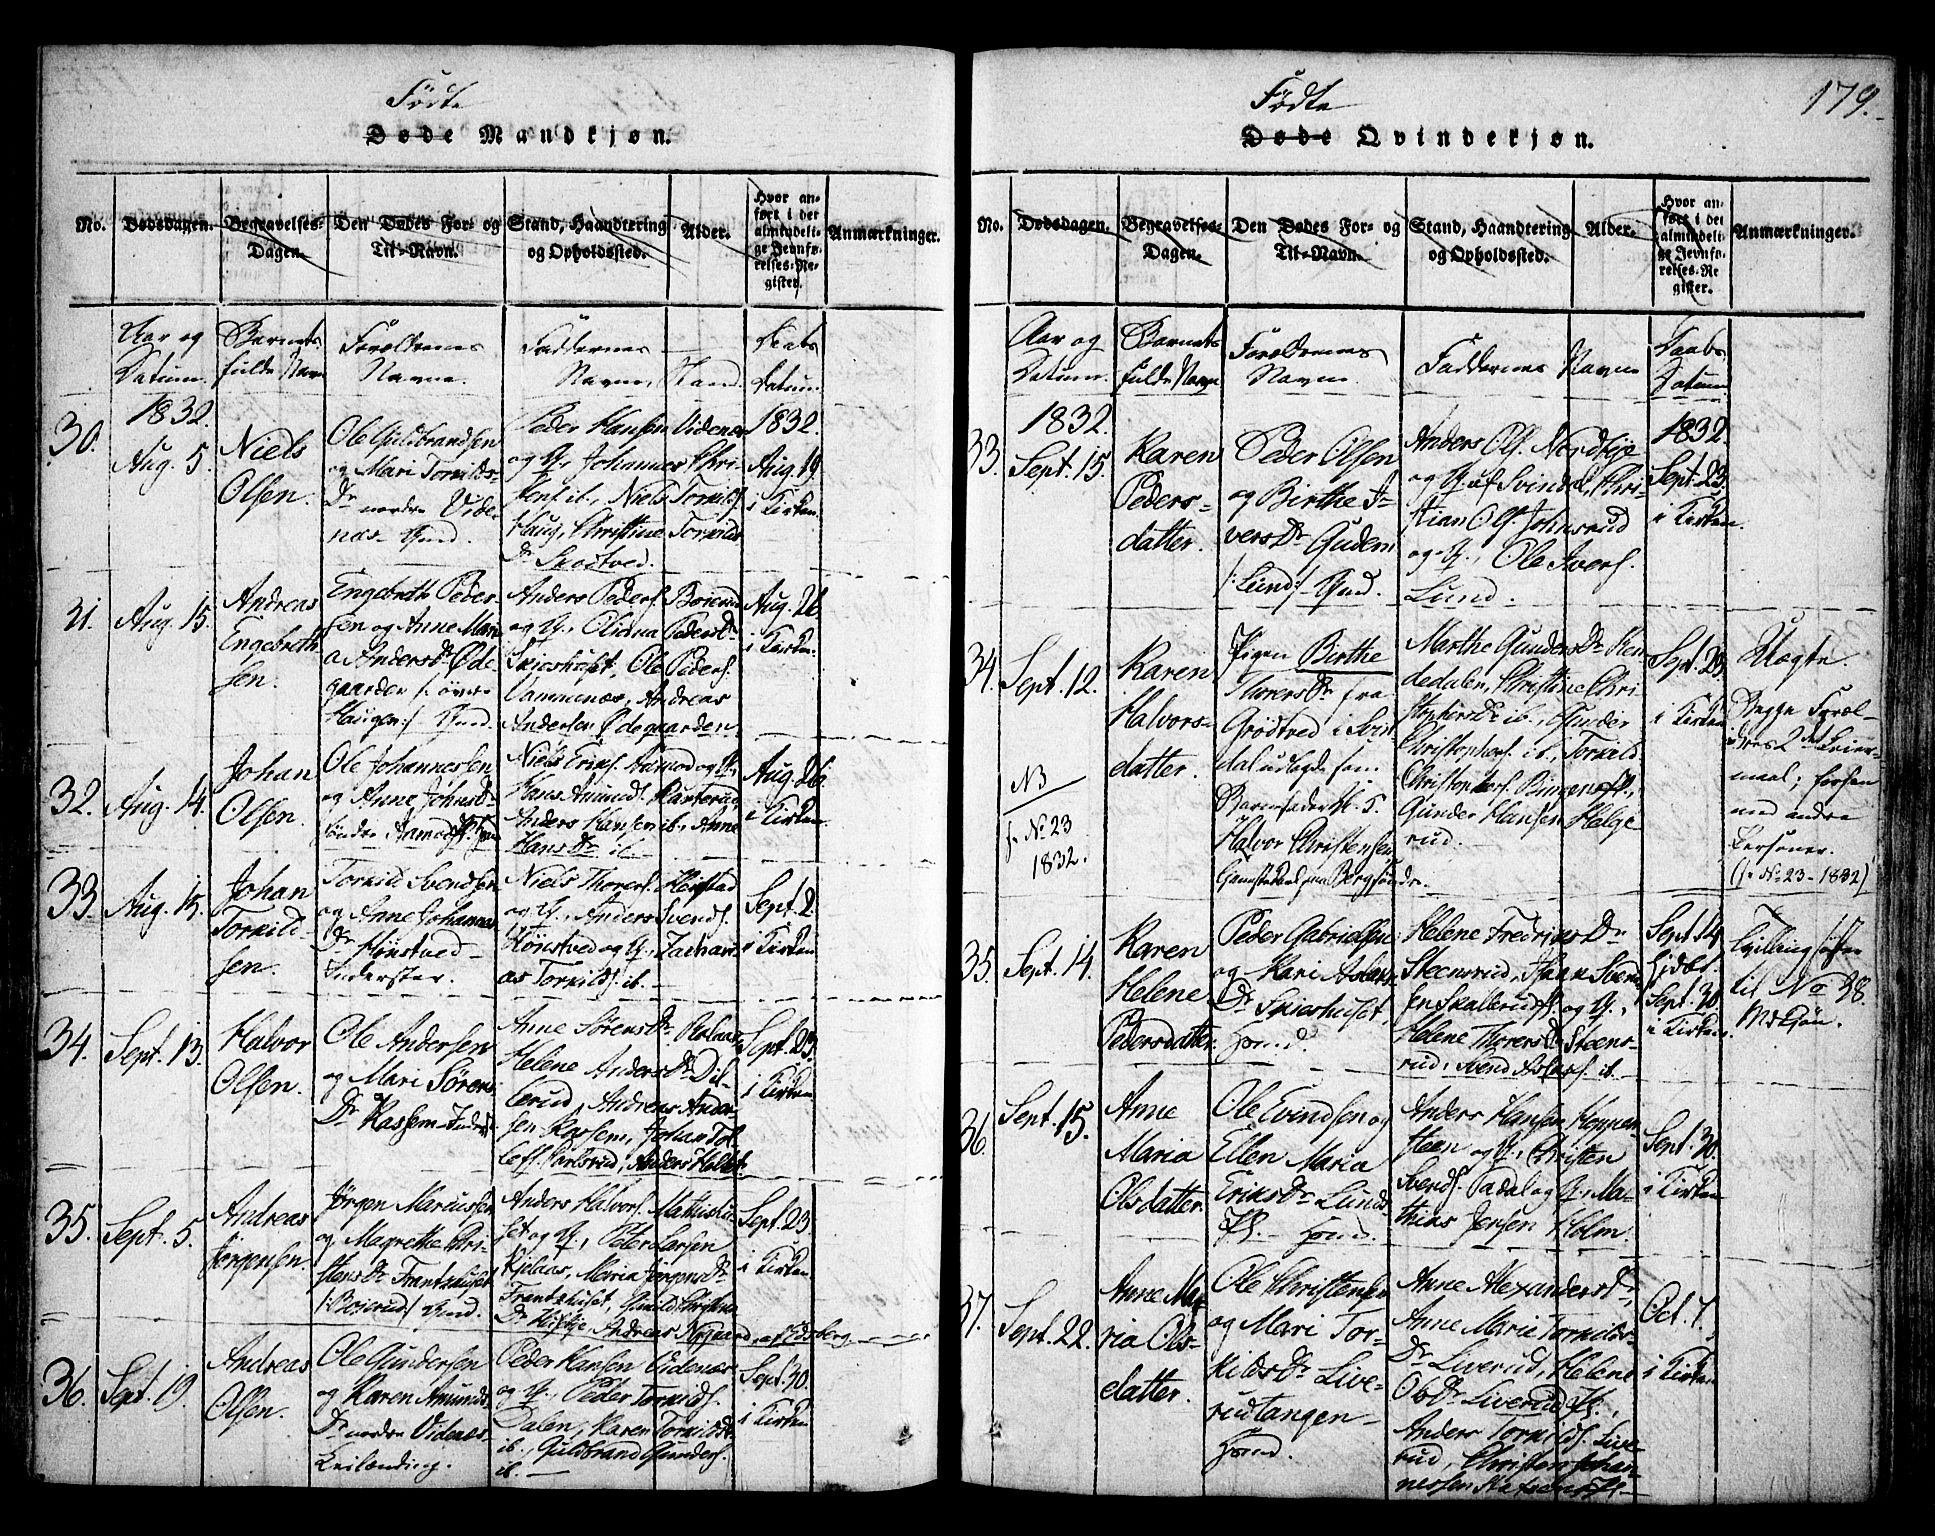 Fødte
Døde Mandkjøn.
No.
Dødsdagen.
Begravelses-
Dagen.
Den Dødes For- og
Til-Navn.
Stand, Haandtering
og Opholdssted.
Alder.
Hvor an-
ført i det
almindeli-
ge Jevnfø-
relses-Re-
gister.
Anmærkninger.
Aar og
Datum.
Barnets
fulde Navn
Forældrenes
Navne.
Faddernes
Navne, Stand
Daabs
Datum.
30.
1832.
Aug. 5.
Niels
Olsen.
Ole Guldbrandsen
og Mari Torkilds-
Dr nordre Vide-
næs
Peder Hansen Videnæs
og Q., Johannes Chri-
stens. ib., Niels Torkilds.
Haug, Christine Torkilds
Dr Skodtved.
1832.
Aug. 19.
i Kirken.
31.
Aug. 15.
Andreas
Engebreth
sen.
Engebreth Peder-
sen og Anne Mari
a Andersdr Øde-
gaarden /: øvre
Haugen :/
Anders Peders. Boierud
og Q., Oliana PedersDr
Skieshuset, Ole Peders.
Vammenæs, Andreas
Andersen Ødegaarden.
Aug. 26.
i Kirken.
32.
Aug. 14.
Johan
Olsen.
Ole Johannessen
og Anne JohnsDr
søndre Aamod
Niels Eriks. Aamod og Q.,
Hans Amunds.
Anders Hansen ib., Anne
HansDr ib.
Aug. 26.
i Kirken.
33.
Aug. 15.
Johan
Torkild-
sen.
Torkild Svendsen
og Anne Johannes
Dr Hønstved
Inderster.
Niels Thorers. Heistad
og Q., Anders Svends.
Hønstved og Q., Zachari-
as Torkilds. ib.
Sept. 2.
i Kirken.
34.
Sept. 13.
Halvor
Olsen.
Ole Andersen
og Mari Sørens
Dr Kassem
Anne SørensDr Rolaas,
Helene AndersDr Dil-
lerud, Andreas Ander-
sen Kassem, Johan Tol-
lefs. Karlsrud, Anders
Sept. 23.
i Kirken.
35.
Sept. 5.
Andreas
Jørgensen.
Jørgen Marcussen
og Magrethe Chri-
stensDr Frantzhuset
/: Boierud :/
Anders Halvors. Mathishu-
set og Q., Peter Larsen
Kjelaas, Maria JørgensDr
Frantzhuset, Gunild Christens
Dr Andreas Nygaard, af Eidsberg
Sept. 23.
i Kirken.
36.
Sept. 19.
Andreas
Olsen.
Ole Gundersen
og Karen Amunds
Dr nordre Videnæs
Peder Hansen Videnæs
og Q., Peder Torkilds.
Dalen, Karen TorkildsDr
ib., Guldbrand Gunders.
ib.
Sept. 30.
i Kirken.
179.
Fødte
Døde Qvindekjøn.
No.
Dødsdagen.
Begravelses-
Dagen.
Den Dødes For- og
Til-Navn.
Stand, Haandtering
og Opholdssted.
Alder.
Hvor an-
ført i det
almindeli-
ge Jevnfø-
relses-Re-
gister.
Anmærkninger.
Aar og
Datum.
Barnets
fulde Navn
Forældrenes
Navne.
Faddernes Navne
Daabs
Datum
33.
1832.
Sept. 15.
Karen
Peders-
datter.
Peder Olsen
og Birthe I-
versDr Gudem
/: Lund :/
Anders Ols. Nordbøe
og Q. af Svindal, Chri-
stian Ols. Johnsrud
og Q., Ole Ivers.
Lund.
1832.
Sept. 23.
i Kirken.
34.
Sept. 12.
NB
f. No 23
1832.
Karen
Halvors-
datter.
Pigen Birthe
ThorersDr fra
Grødtved i Svin
dal udlagde som
Barnefader
Halvor Christensen
Marthe GundersDr Ken-
dedalen, Christine Chri-
stophersDr ib., Gunder
Christophers. ib., Torkild
Christophers.
Gunder Hansen Helge
rud.
Sept. 23.
i Kirken
Uægte.
Begge Foræl-
dres 2det Leier-
maal; forhen
med andre
Personer.
(f. No 23 - 1832)
35.
Sept. 14.
Karen
Helene
Pedersdatter.
Peder Gabrielsen
og Kari Aslaks
Dr Skieshuset,
Helene FredriksDr
Steensrud, Johan Svend
sen Skallerud og Q.,
Helene ThorersDr Steens-
rud, Svend Aslaks. ib.
Sept. 14.
Hjdøbt.
Sept. 30.
i Kirken.
Tvilling søster
til No 38.
M.kjøn.
36.
Sept. 15.
Anne
Maria
Olsdatter.
Ole Evindsen og
Ellen Maria
EriksDr Lunds
Anders Hansen Hoppen-
steen og Q., Christen
Svends. Dadal og Q., Ma-
thias Jensen Holm.
Sept. 30.
i Kirken
37.
Sept. 22.
Anne Ma-
ria Ols-
datter.
Ole Christensen
og Mari Tor-
kildsDr Live-
rudtangen
Anne AlexandersDr,
Anne Marie Torkilds-
Dr Liverud, Helene
OlsDr Liverud
Anders Torkilds. Live
rud, Christen Johan-
nessen
Oct. 7.
i Kirken